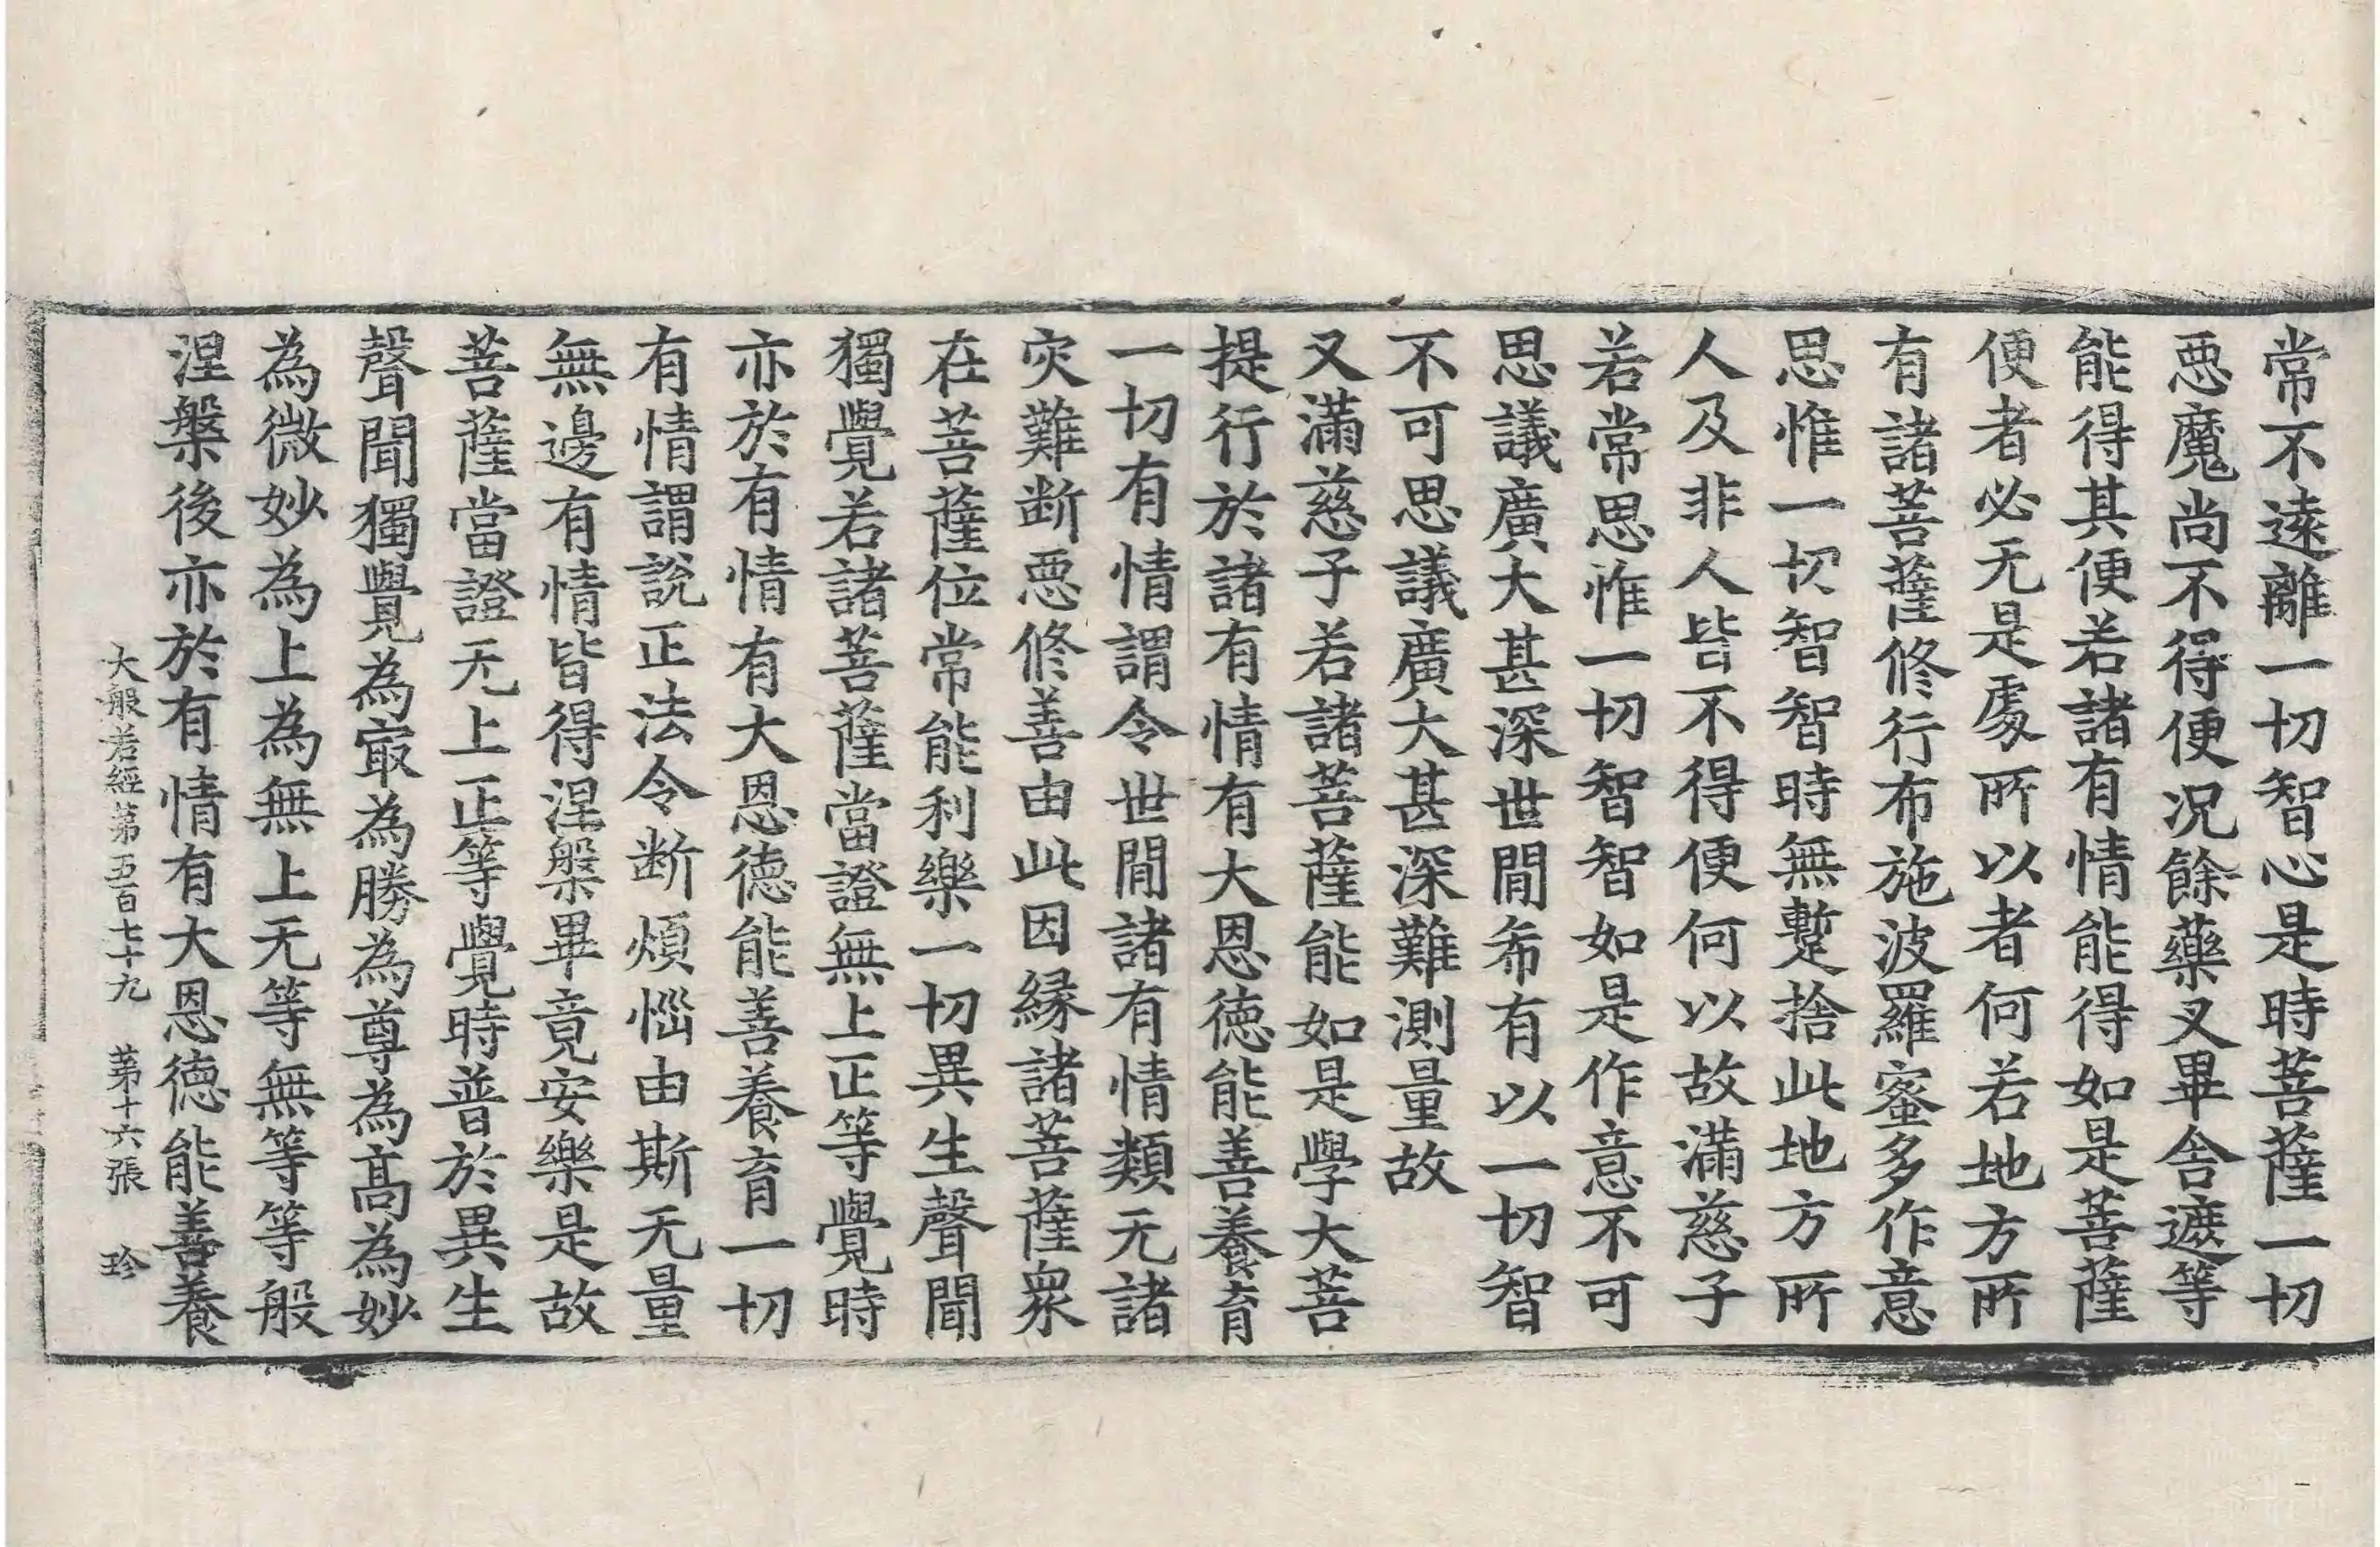 常不遠離一切智心是時菩薩一切
惡魔尚不得便况餘藥叉畢舎遮等
能得其便若諸有情能得如是菩薩
便者必无是處所以者何若地方所
有諸菩薩修行布施波羅蜜多作意
思惟一切智智時無蹔捨此地方所
人及非人皆不得便何以故滿慈子
若常思惟一切智智如是作意不可
思議廣大甚深世間希有以一切智
不可思議廣大甚深難測量故
又滿慈子若諸菩薩能如是學大菩
提行於諸有情有大恩德能善養育
一切有情謂令世間諸有情類无諸
灾難断惡修善由此因緣諸菩薩衆
在菩薩位常能利樂一切異生聲聞
獨覺若諸菩薩當證無上正等覺時
亦於有情有大恩德能善養育一切
有情謂說正法令断煩惱由斯无量
無邊有情皆得涅槃畢竟安樂是故
菩薩當證无上正等覺時普於異生
聲聞獨覺為㝡為勝為尊為髙為妙
為微妙為上為無上无等無等等般
涅槃後亦於有情有大恩德能善養
大般若經第五百七十九 第十六張 珍